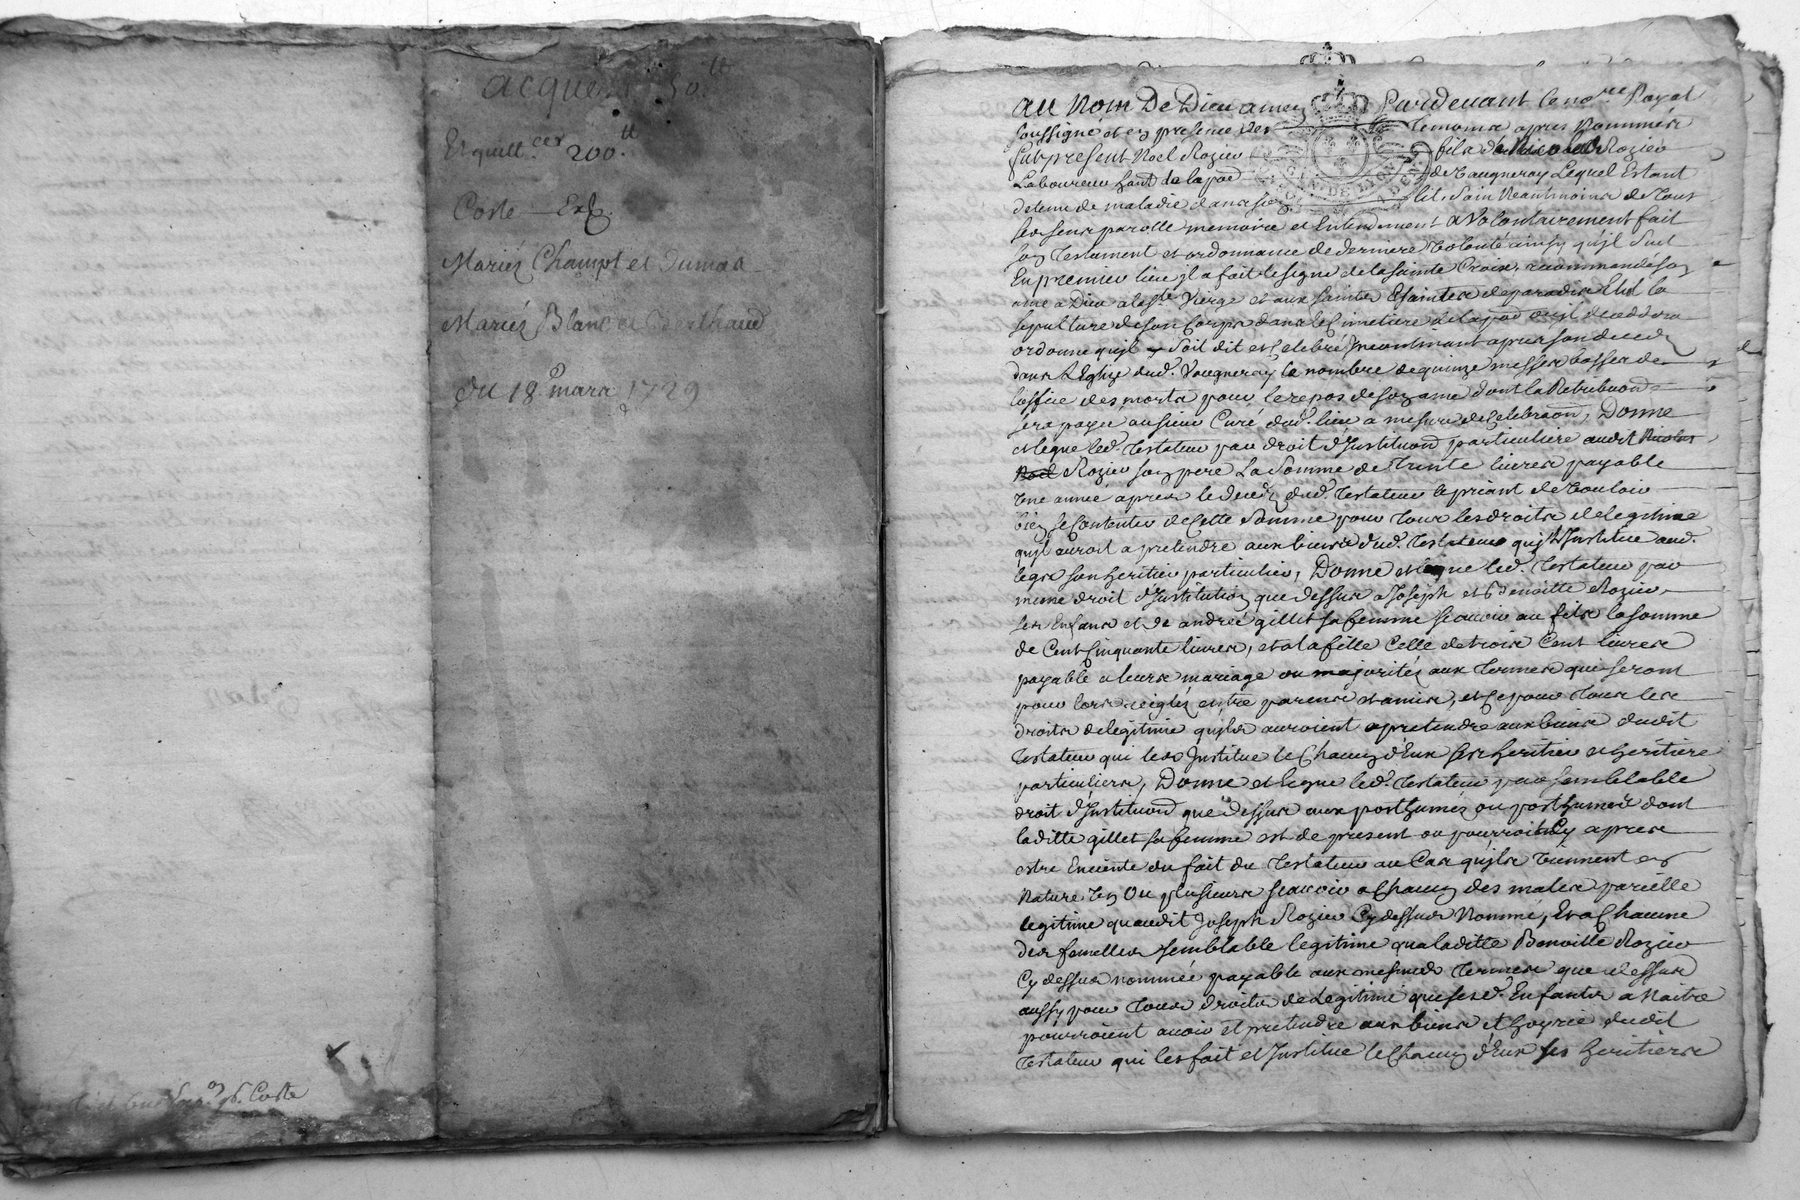 acquest 50.tt
Et quitt.ces 200.tt
Coste Exp.
Mariéz Champt et Dumas
Mariéz Blanc et Berthaud
du 18e mars 1729
Coste
au Nom De Dieu amen Pardevant le no.re Royal
soussigné et en presence des temoins apres Nommés
fut present Noel Rozier fils de Nicolas Rozier
Laboureur hant. de la par de Vaugneray Lequel Estant
detenu de maladie dans son lit, Sain Neantmoins de tous
ses sens parolle memoire et Entendement a Volontairement fait
son Testament et ordonnance de derniere Volonté ainsy qu'jl suit
En premier lieu jl a fait le signe de la sainte Croix, recommandé son
ame a Dieu a la ste. Vierge et aux saints Esaintes de paradis Elul la
sepulture de son Corps dans le Cimetiere de la par ou jl decedera
ordonne qu'jl soit dit et Celebré Jncontinant apres son deced
dans L'Eglize dud. Vaugneray le nombre de quinze messes basses de
l'office des morts pour le repos de son ame dont la Retribuon
sera payée au sieur Curé dud. lieu a mesure de Celebraon, Donne
et legue led. Testateur par droit d'Jnstituon particuliere audit Nicolas
Noel Rozier son pere La Somme de Trente livres payable
Une année apres le deced dud. Testateur le priant de Vouloir
bien se Contenter de Cette Somme pour tous les droits de legitime
qu'jl auroit a pretendre aux biens dud. Testateur qui l'Jnstitue aud.
legs son heritier particulier, Donne et legue led. Testateur par
meme droit d'Jnstitution que dessus a Joseph et Benoitte Rozier
ses Enfans et de andreé gillet sa femme scavoir au fils la somme
de Cent Cinquante livres, et a la fille Celle de trois Cent livres
payable a leurs mariage ou majorités aux termes qui seront
pour lors reiglés entre parens et amis, et Ce pour tous les
droits de legitime qu'jls auroient a pretendre aux biens dudit
Testateur qui les Jnstitue le Chacun d'Eux ses heritier et heritiere
particuliers, Donne et legue led. Testateur par semblable
droit d'Jnstituon que dessus aux posthumes ou posthumes dont
laditte gillet sa femme est de present ou pourroit Cy apres
estre Enceinte du fait du Testateur au Cas qu'jls viennent en
Nature Un Ou plusieurs scavoir a Chacun des males pareille
legitime qu'audit Joseph Rozier Cy dessus Nommé, Et a Chacune
des femelles semblable legitime qu'a laditte Benoitte Rozier
Cy dessus nommée payable aux mesmes termes que dessus
aussy pour tous droits de Legitime que sesd. Enfants a Naitre
pourroient avoir et pretendre aux biens et hoyrie dudit
Testateur qui les fait et Jnstitue le Chacun d'Eux ses heritiers